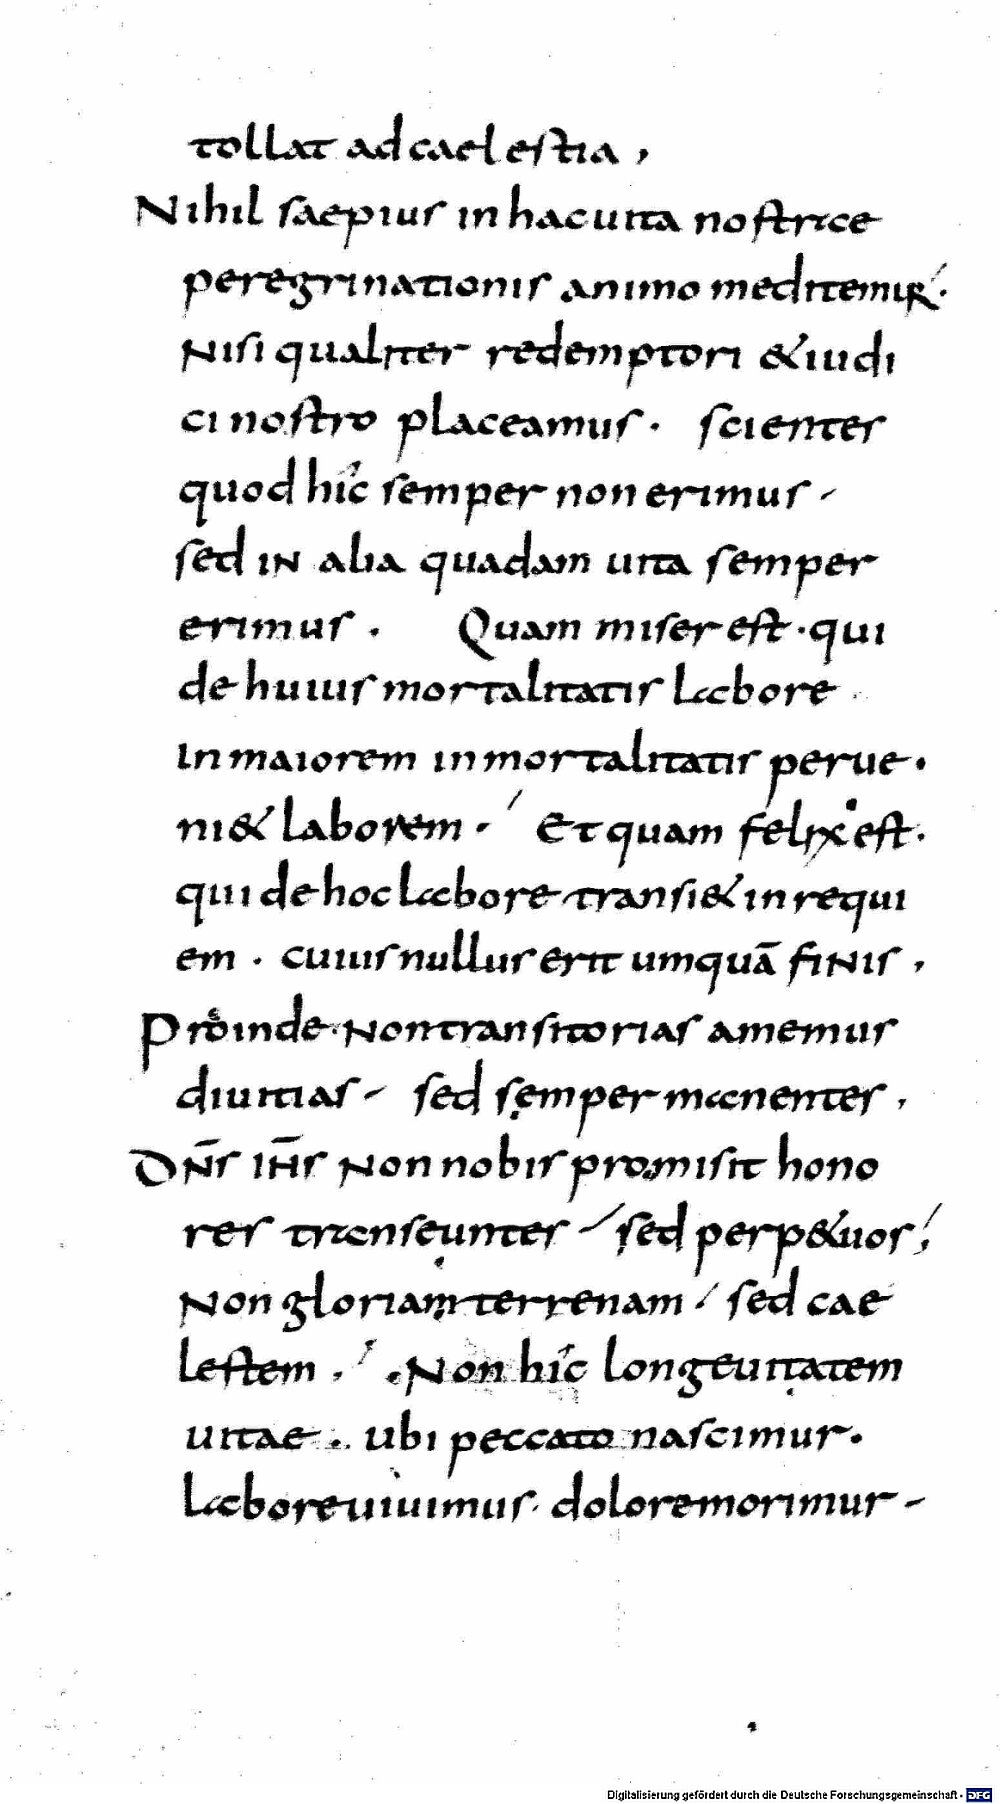 tollat ad caelestia,
Nihil saepius in hac uita nostrae
peregrinationis animo meditemur.
Nisi qualiter redemptori & iudi
ci nostro placeamus. scientes
quod hic semper non erimus
sed in alia quadam uita semper
erimus. Quam miser est. qui
de huius mortalitatis labore
in maiorem inmortalitatis perue.
ni& laborem. Et quam felix est.
qui de hoc labore transi& in requi
em. cuius nullus erit umquā finis,
Proinde. non transitorias amemus
diuitias sed semper manentes,
Dn̄s ih̄s non nobis promisit hono
res transeuntes sed perp&uos;
Non gloriam terrenam sed cae
lestem. Non hic longeuitatem
uitae. ubi peccato nascimur.
labore uiuimus. dolore morimur
Digitalisierung gefördert durch die Deutsche Forschungsgemeinschaft - DFG